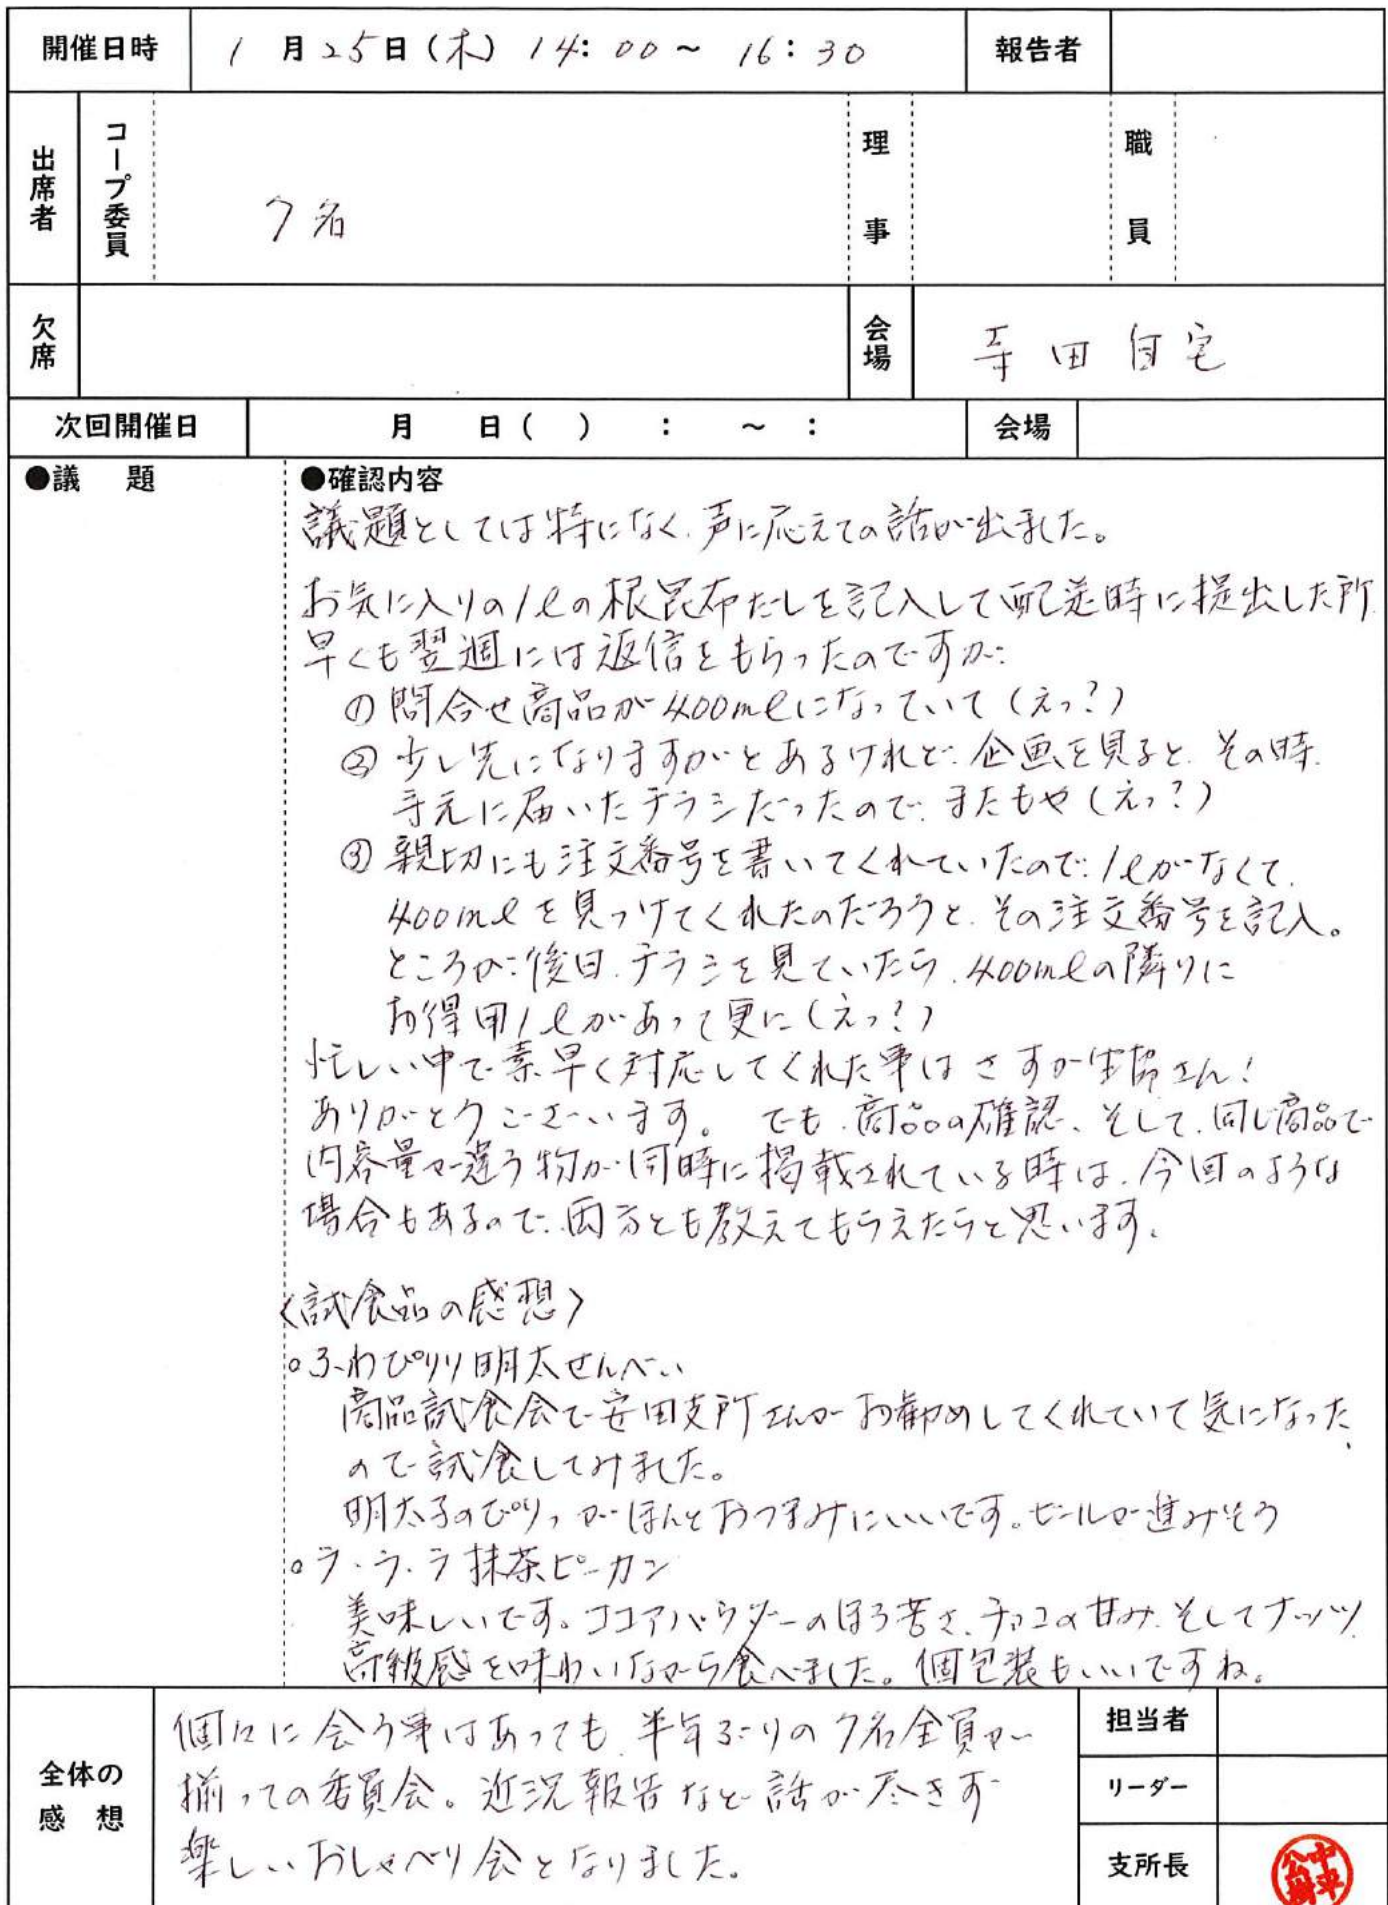 開催日時 1月25日(木) 14:00～16:30 報告者
出席者 コープ委員 7名 理事 職員
欠席 会場 寺田自宅
次回開催日 月 日( ) : ～ : 会場
●議 題 ●確認内容
議題としては特になく、声に応えての話が出ました。
お気に入りの1ℓの根昆布だしを記入して配送時に提出した所
早くも翌週には返信をもらったのですが、
①問合せ商品が400mℓになっていて(えっ?)
②少し先になりますがとあるけれど、企画を見ると、その時、
手元に届いたチラシだったので、またもや(えっ?)
③親切にも注文番号を書いてくれていたので、1ℓがなくて、
400mℓを見つけてくれたのだろうと、その注文番号を記入。
ところが、後日、チラシを見ていたら、400mℓの隣りに
お得用1ℓがあって更に(えっ?)
忙しい中で素早く対応してくれた事はさすが生協さん!
ありがとうございます。 でも、商品の確認、そして、同じ商品で
内容量が違う物が同時に掲載されている時は、今回のような
場合もあるので、両方とも教えてもらえたらと思います。
〈試食品の感想〉
○ふわぴりり明太せんべい
商品試食会で安田支所さんがお勧めしてくれていて気になった
ので試食してみました。
明太子のぴりっがほんとおつまみにいいです。ビールが進みそう
○ラ・ラ・ラ抹茶ピーカン
美味しいです。ココアパウダーのほろ苦さ、チョコの甘み、そしてナッツ
高級感を味わいながら食べました。個包装もいいですね。
全体の感想
個々に会う事はあっても、半年ぶりの7名全員が
揃っての委員会。近況報告など話が尽きず
楽しいおしゃべり会となりました。
担当者
リーダー
支所長
中平